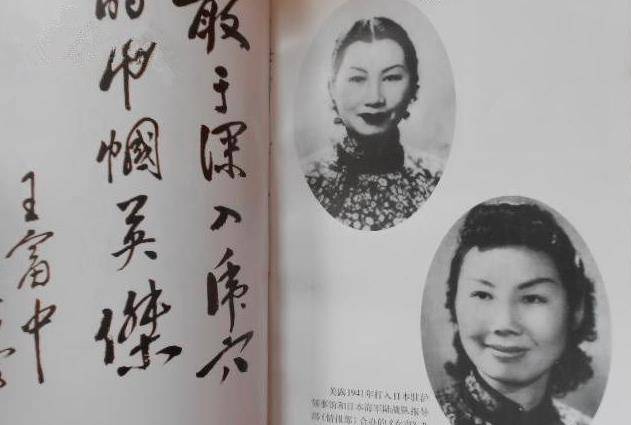 敢于深入虎穴
的巾帼英杰
王富中
关露1941年打入日本驻沪
领事馆和日本海军陆战队报导
部（情报部）合办的《女声》